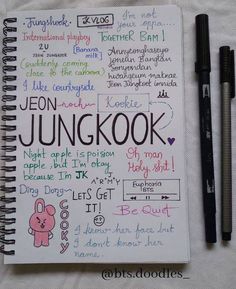 Jungshook
JK VLOG
I'm not
your oppa....
International playboy
TOGETHER BAM!
2U
JEON JUNGKOOK
Banana
milk
(suddenly coming
close to the camera)
I like countryside
Jeon Jungkook imnida
JEON
Kookie
JUNGKOOK.
Night apple is poision
apple, but I'm okay
because I'm JK
Oh man
Holy shit!
ARMY
Ding Dong
LET'S GET
IT!
Euphoria
BTS
Be Quiet
COOKY
I know her face but
I don't know her
name.
@bts.doodles_